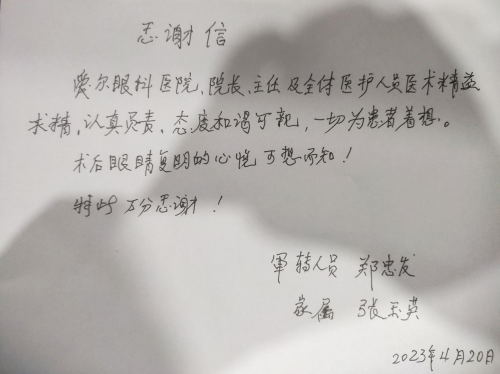 感谢信
爱尔眼科医院、院长、主任及全体医护人员医术精益
求精,认真负责、态度和谒可亲,一切为患者着想。
术后眼睛复明的心悦可想而知!
特此万分感谢!
军转人员 郑忠发
家属 张玉英
2023年4月20日